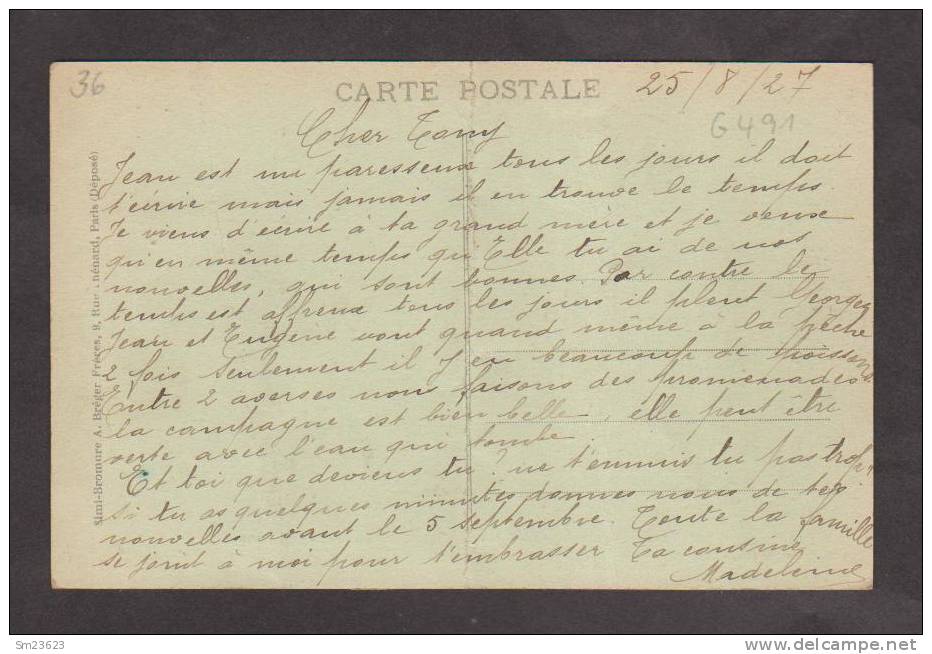 36
CARTE POSTALE
25/8/27
G491
Cher Tony
Jean est un paresseux tous les jours il doit
t'écrire mais jamais il en trouve le temps.
Je viens d'écrire à ta grand mère et je veux
qu'en même temps qu'Elle tu ai de nos
nouvelles, qui sont bonnes. Par contre le
temps est affreux tous les jours il pleut Georges
Jean et Eugène vont quand même à la pêche
2 fois seulement il y eu beaucoup de poissons
Entre 2 averses nous faisons des promenades
la campagne est bien belle, elle peut être
verte avec l'eau qui tombe.
Et toi que deviens tu? ne t'ennuis tu pas trop?
si tu as quelques minutes donnes nous de tes
nouvelles avant le 5 septembre. Toute la famille
se joint à moi pour t'embrasser Ta cousine
Madeleine
Simi-Bromure A. Bréger Frères, 9, Rue Thénard, Paris (Déposé)
Sm23623
delcampe.net